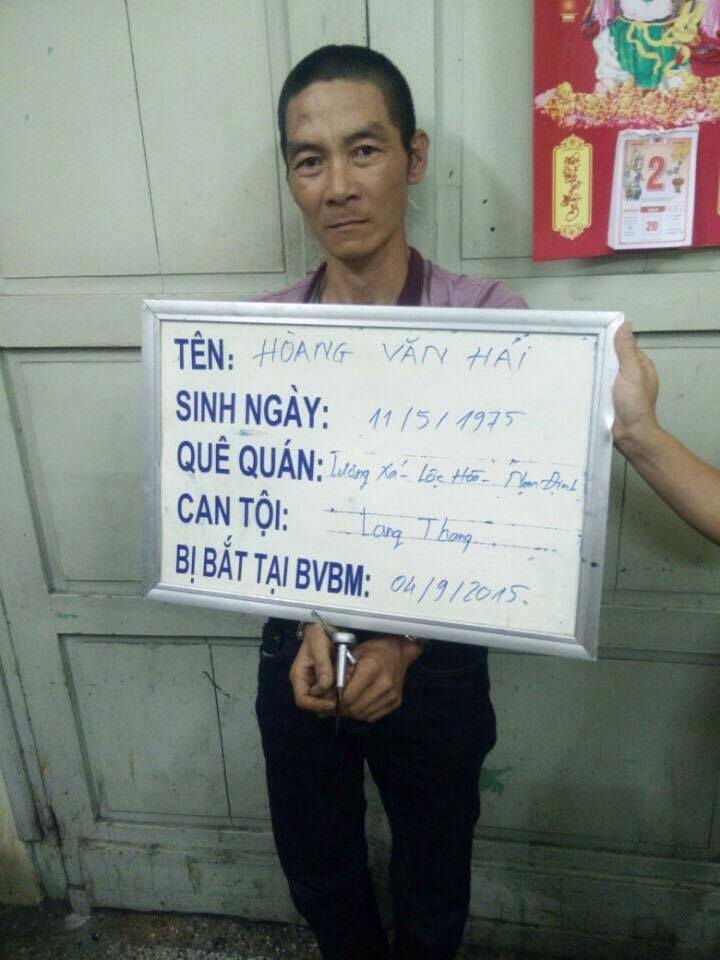 2
20
TÊN: HOÀNG VĂN HẢI
SINH NGÀY: 11/5/1975
QUÊ QUÁN: Lương Xá - Lộc Hòa - Nam Định
CAN TỘI: Lang Thang
BỊ BẮT TẠI BVBM: 04/9/2015.